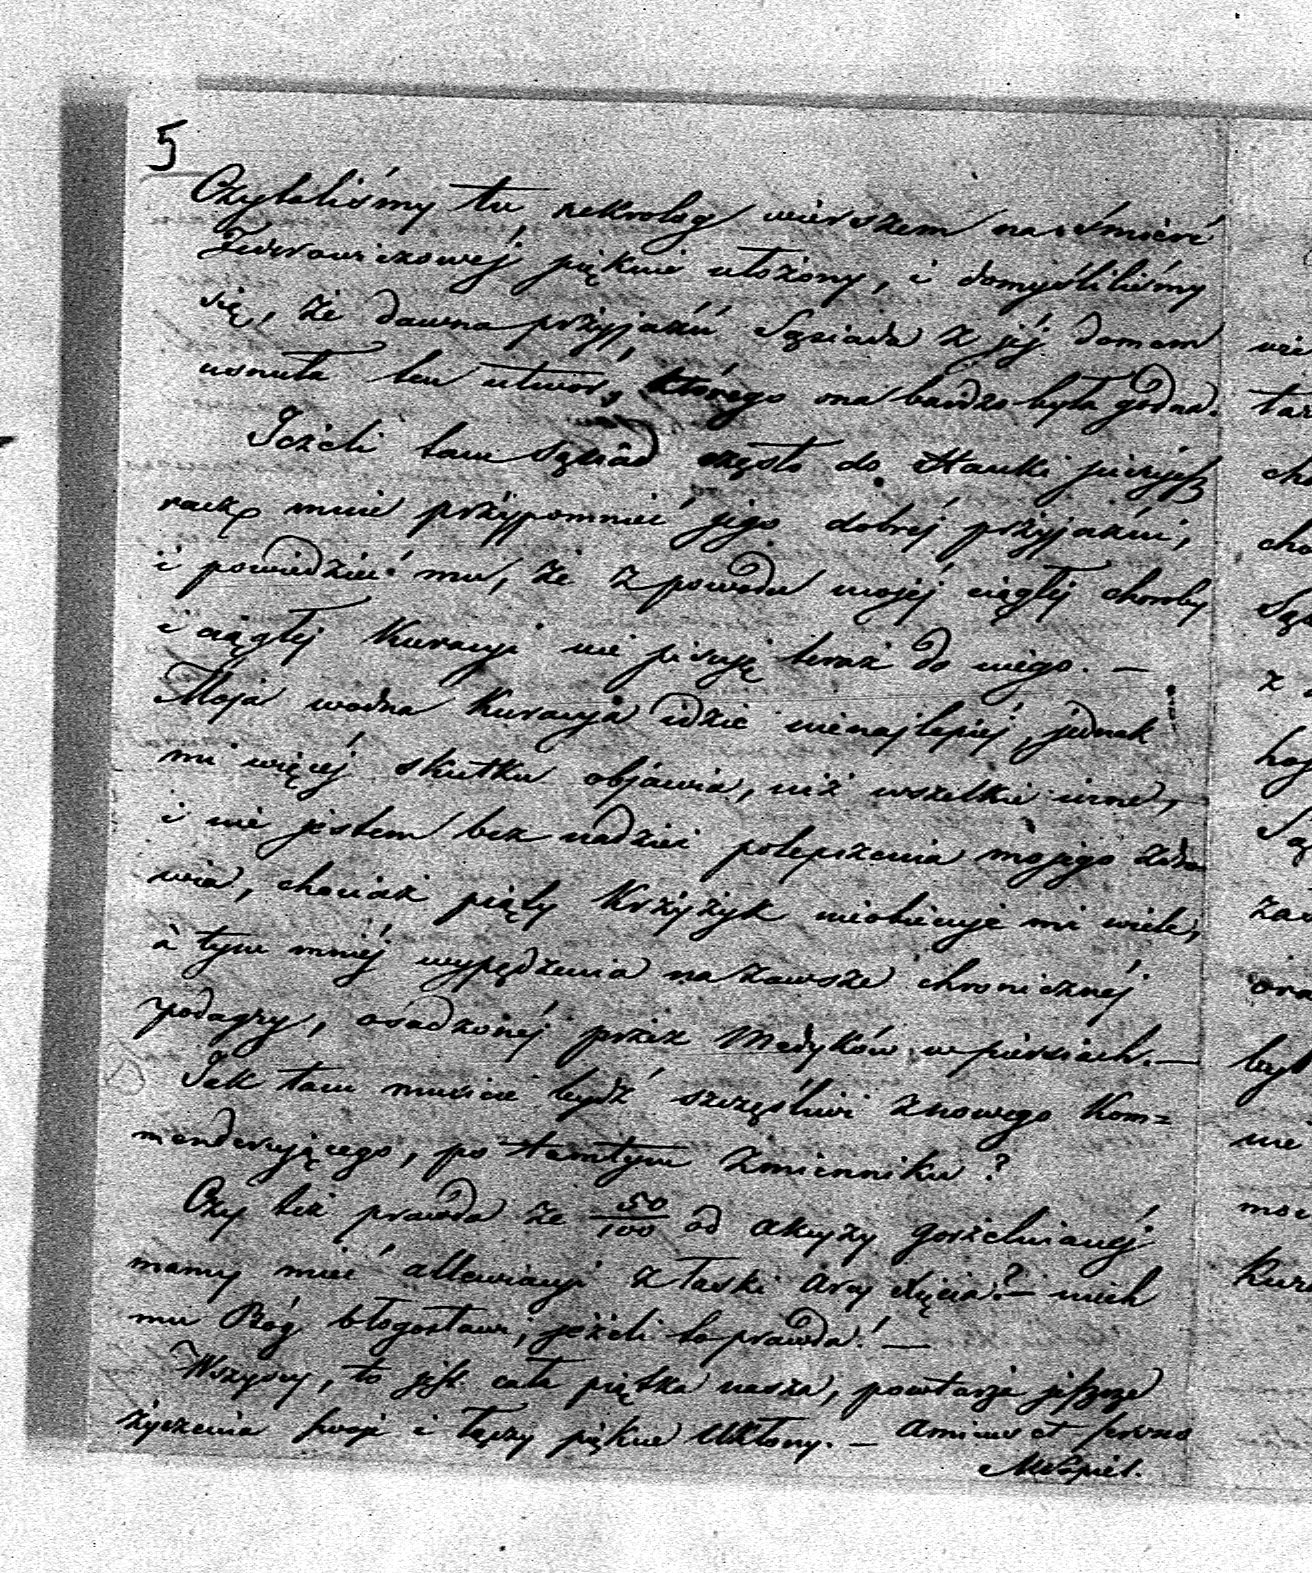 5
Czytaliśmy tu nekrolog wierszem na śmierć
pięknie ułożony, i domyśliliśmy
się, że dawna przyjaźń Sąsiada z jéj domem
usnuła ten utwór, którego ona bardzo była godna.
Jeżeli tam Sąsiad często do Hanki pisujesz
racz mnie przypomnieć jego dobréj przyjaźni,
i powiedzieć mu, że z powodu mojéj ciągłéj choroby
i ciągłéj kuracyi nie pisuję teraz do niego. —
Moja wodna kuracyja idzie nienajlepiéj, jednak
mi więcéj skutku objawia, niż wszelkie inne,
i nie jestem bez nadziei polepszenia mojego zdro
wia, chociaż piąty krzyżyk nieobiecuje mi wiele,
a tym mniéj wypędzenia na zawsze chronicznéj
podagry, osadzonéj przez Medyków w piersiach. —
Jak tam musicie bydź szczęśliwi z nowego Kom=
menderującego, po tamtym zmienniku?
Czy też prawda że 50/100 od akcyzy gorzelnianéj
mamy mieć allewiacyi z łaski Arcy Xięcia? — niech
mu Bóg błogosławi, jeżeli to prawda! —
Wszyscy, to jest cała piątka nasza, powtarza jeszcze
życzenia swoje i łączy piękne Ukłony. — Amicus et servus